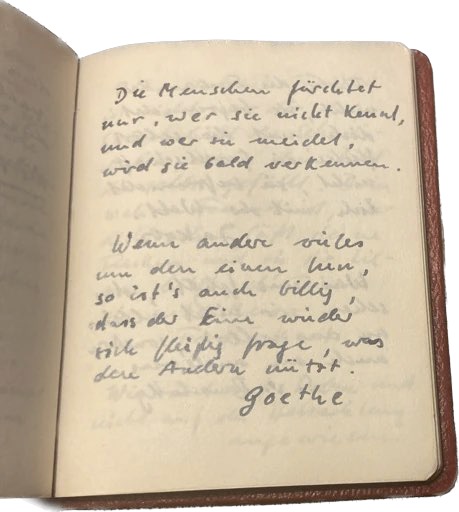 Die Menschen fürchtet
nur, wer sie nicht kennt,
und wer sie meidet,
wird sie bald verkennen.
Wenn andere vieles
um den einen tun,
so ist's auch billig,
dass der Eine wieder
sich fleißig frage, was
den Andern nützt.
Goethe